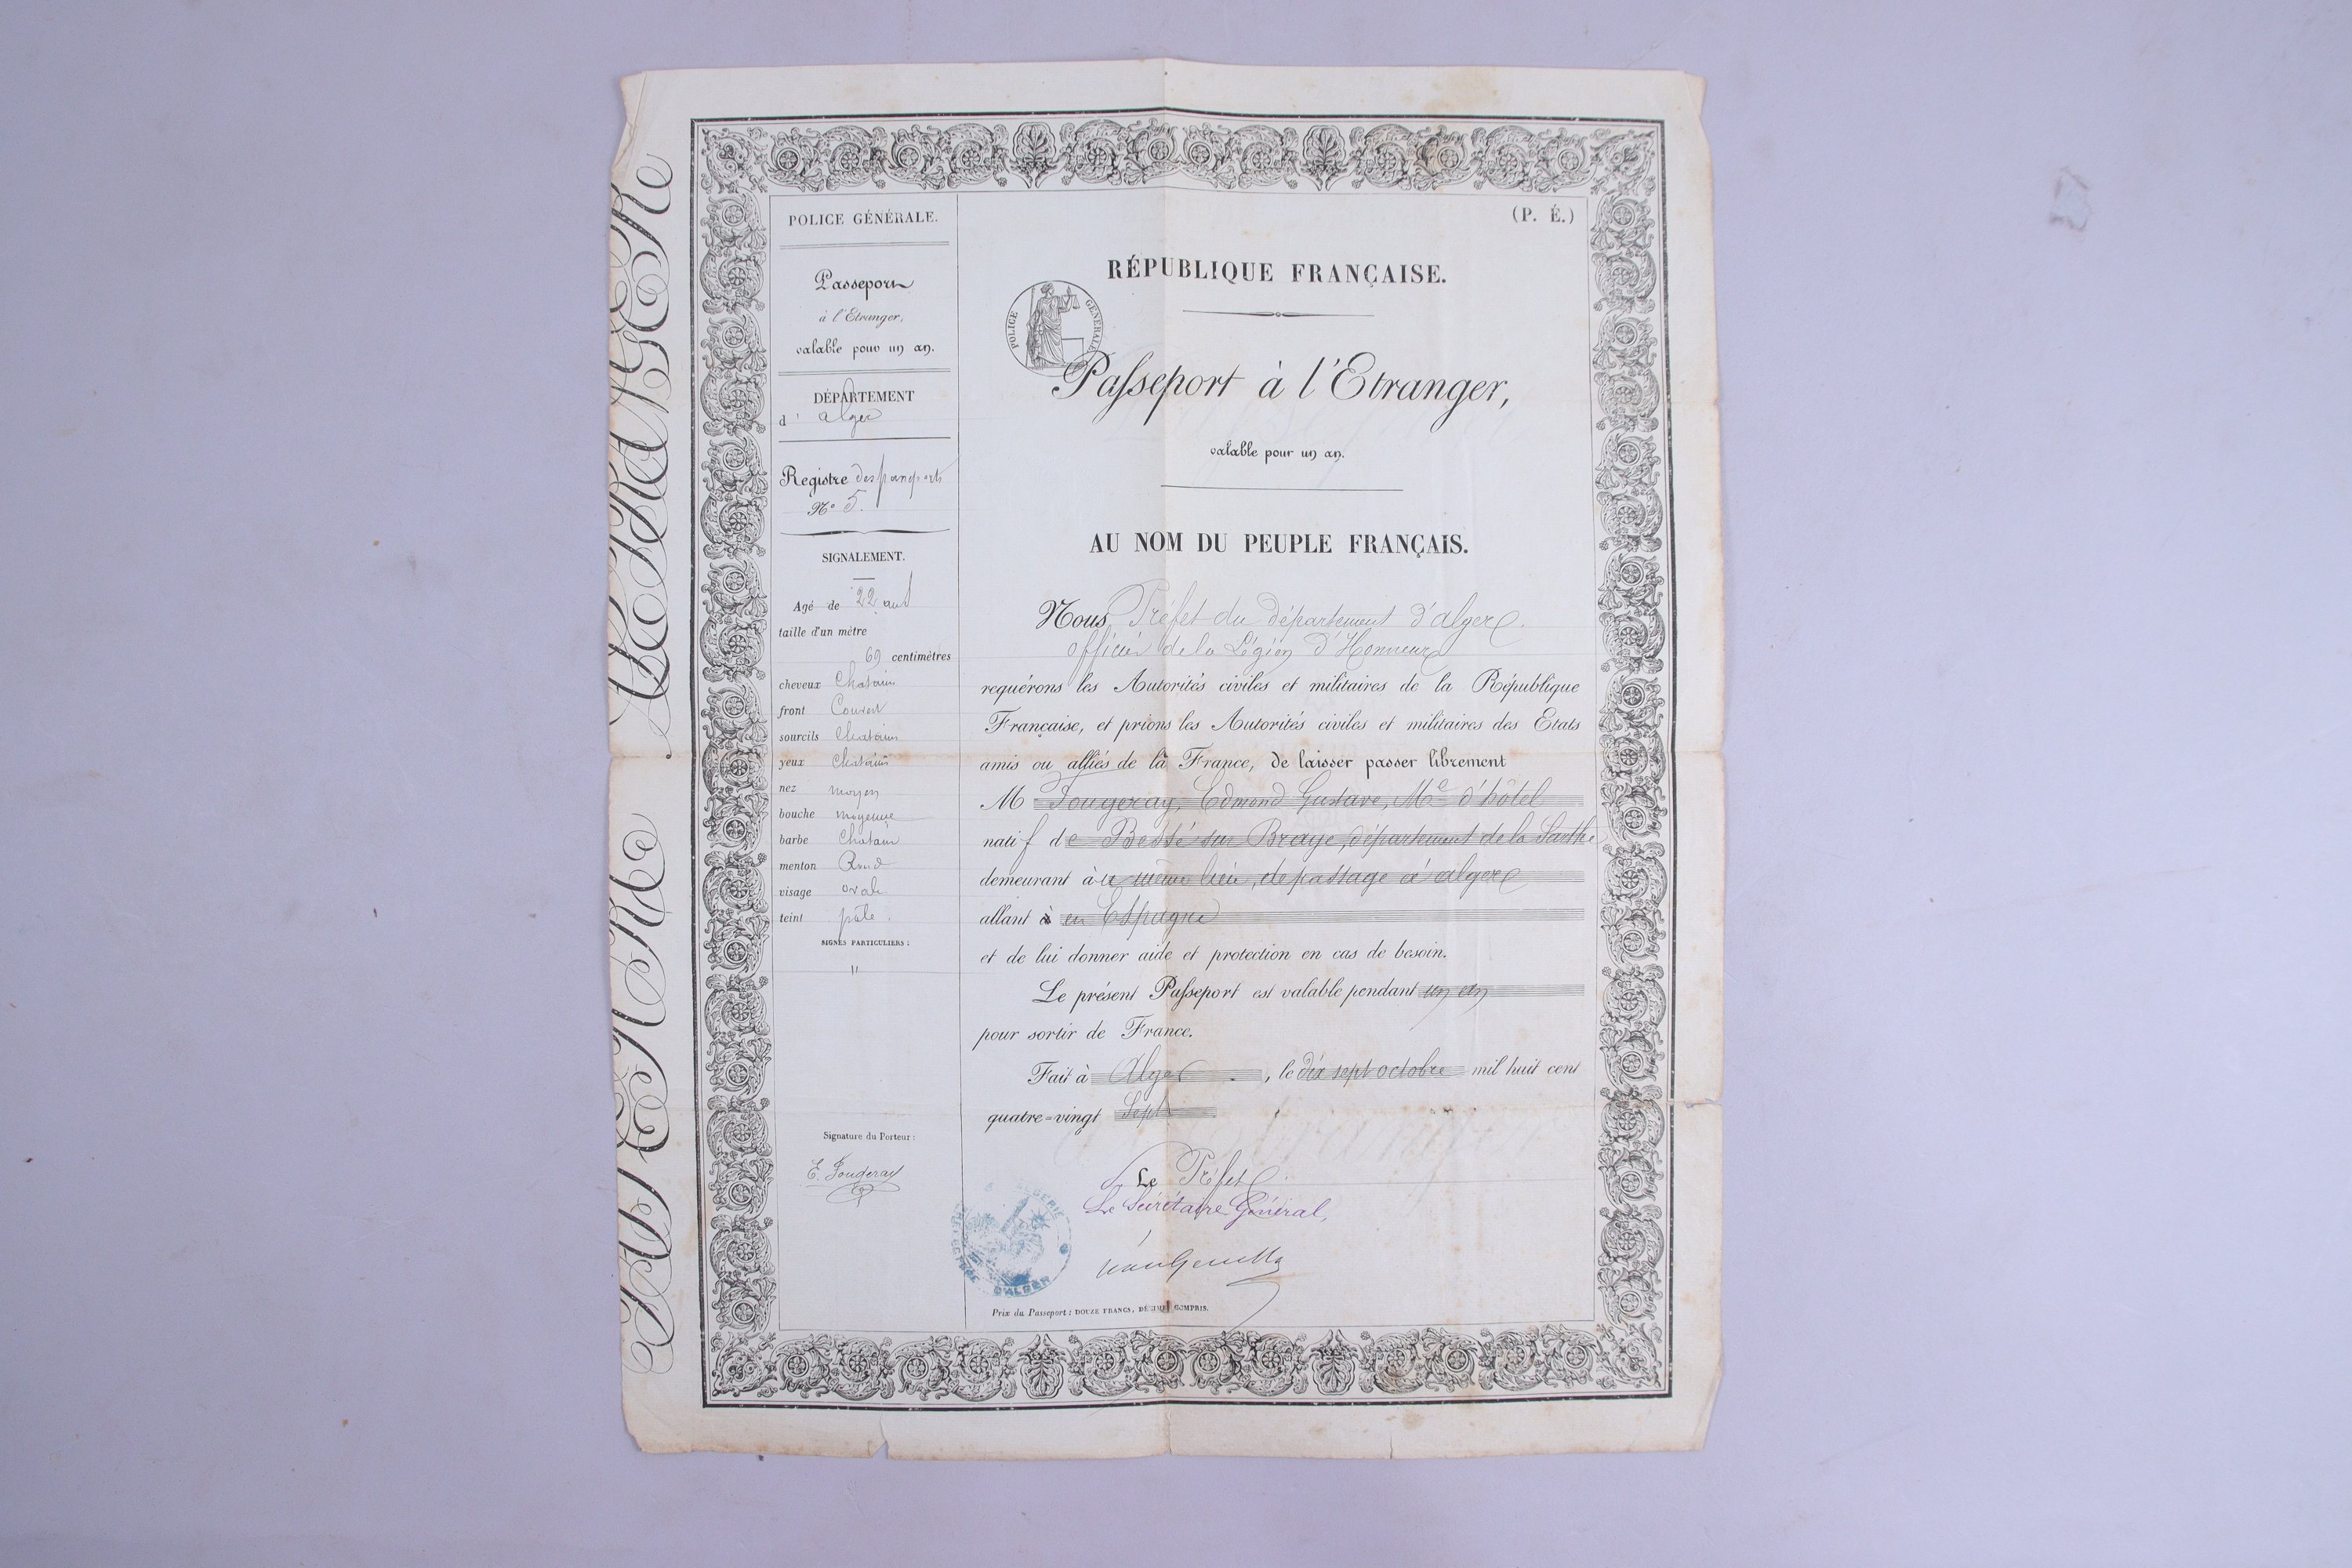 POLICE GÉNÉRALE.
Passeport
à l'Etranger,
valable pour un an.
DÉPARTEMENT
d' alger
Registre des passeports
N° 5.
SIGNALEMENT.
Agé de 22 ans
taille d'un mètre
69 centimètres
cheveux Chatain
front Couvert
sourcils Chatains
yeux Chatains
nez moyen
bouche moyenne
barbe Chatain
menton Rond
visage ovale
teint pâle.
SIGNES PARTICULIERS :
"
Signature du Porteur :
E. Fougeray
(P. É.)
RÉPUBLIQUE FRANÇAISE.
POLICE GÉNÉRALE
Passeport à l'Etranger,
valable pour un an.
AU NOM DU PEUPLE FRANÇAIS.
Nous Préfet du département d'alger
officier de la Légion d'Honneur
requérons les Autorités civiles et militaires de la République
Française, et prions les Autorités civiles et militaires des Etats
amis ou alliés de la France, de laisser passer librement
M Fougeray, Edmond Gustave, Me d'hôtel
natif de Bessé sur Braye, département de la Sarthe
demeurant à u même lieu, de passage à alger
allant à en Espagne
et de lui donner aide et protection en cas de besoin.
Le présent Passeport est valable pendant un an
pour sortir de France.
Fait à Alger, le dix sept octobre mil huit cent
quatre-vingt Sept
Le Préfet
Le Secrétaire Général,
ALGÉRIE
D'ALGER
Prix du Passeport : DOUZE FRANCS, DÉCIMES COMPRIS.